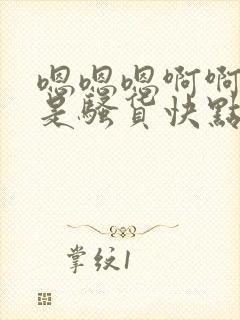 嗯嗯嗯啊啊
是骚货快點
掌纹1